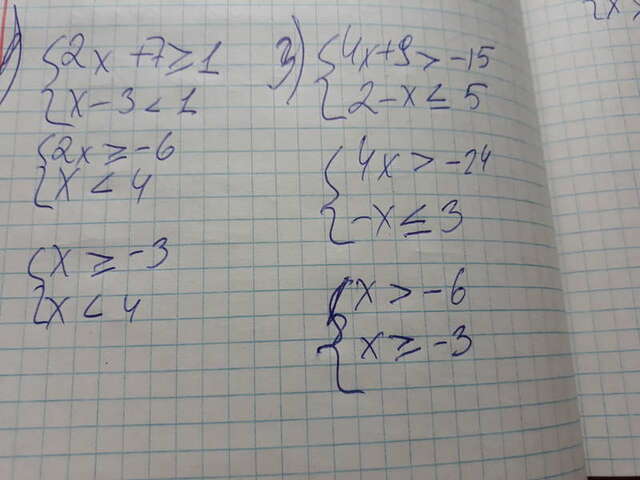 {2x + 7 ≥ 1
x - 3 < 1
{2x ≥ -6
x < 4
{x ≥ -3
x < 4
3) {4x + 9 > -15
2 - x ≤ 5
{4x > -24
-x ≤ 3
{x > -6
x ≥ -3
2x